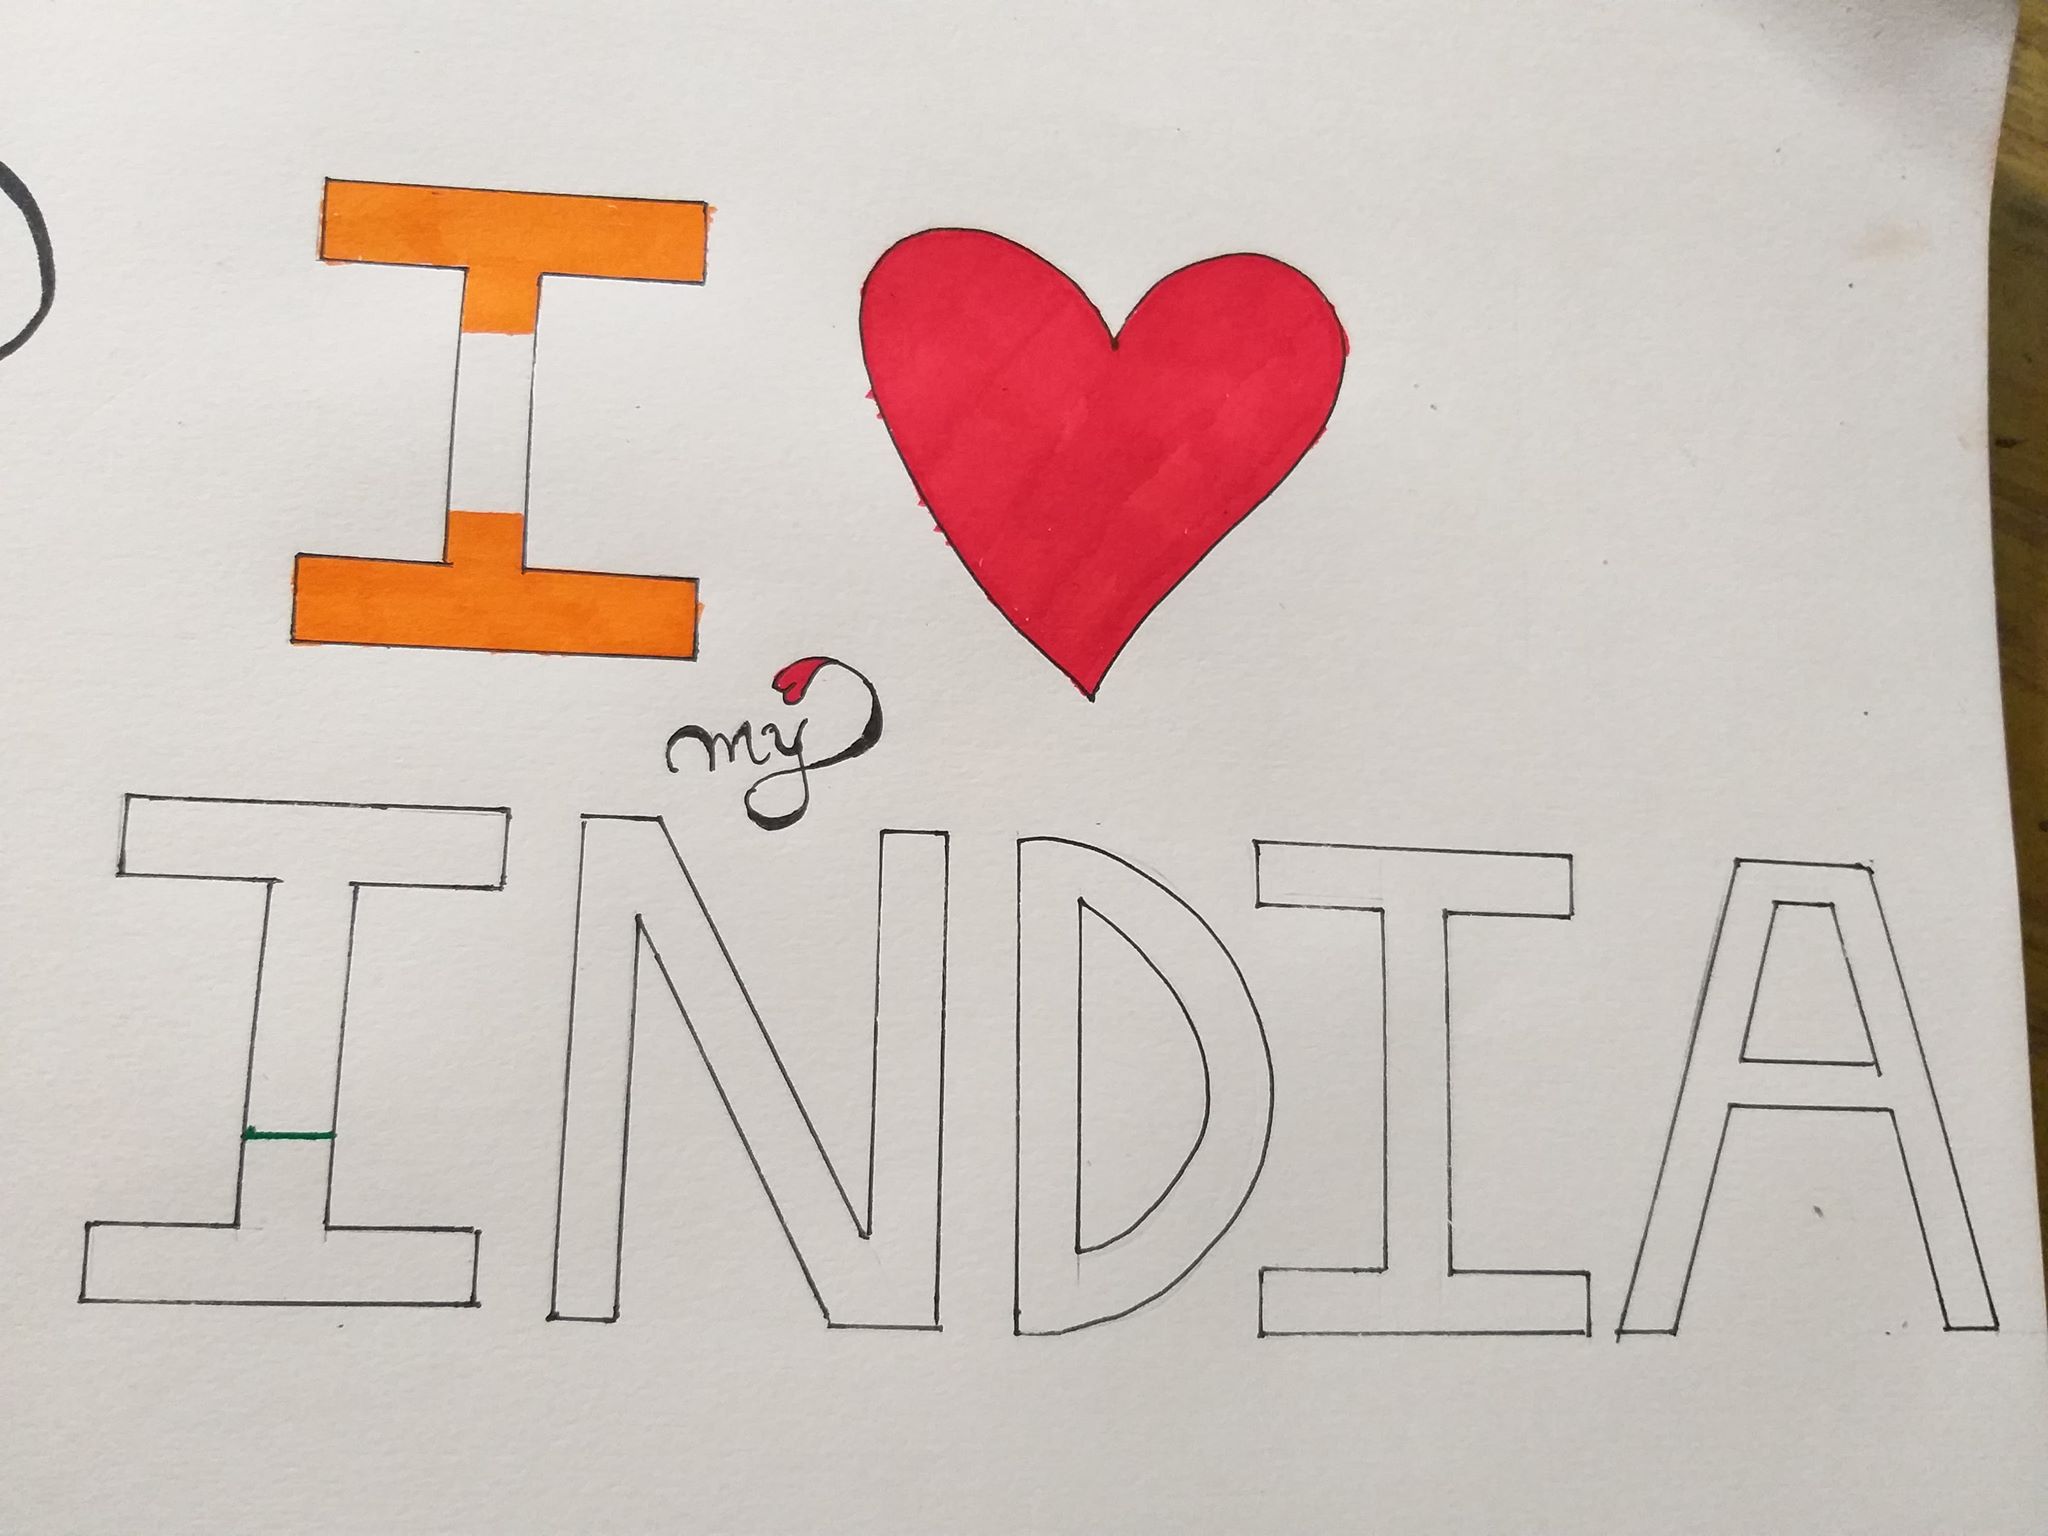 I ❤
my
INDIA